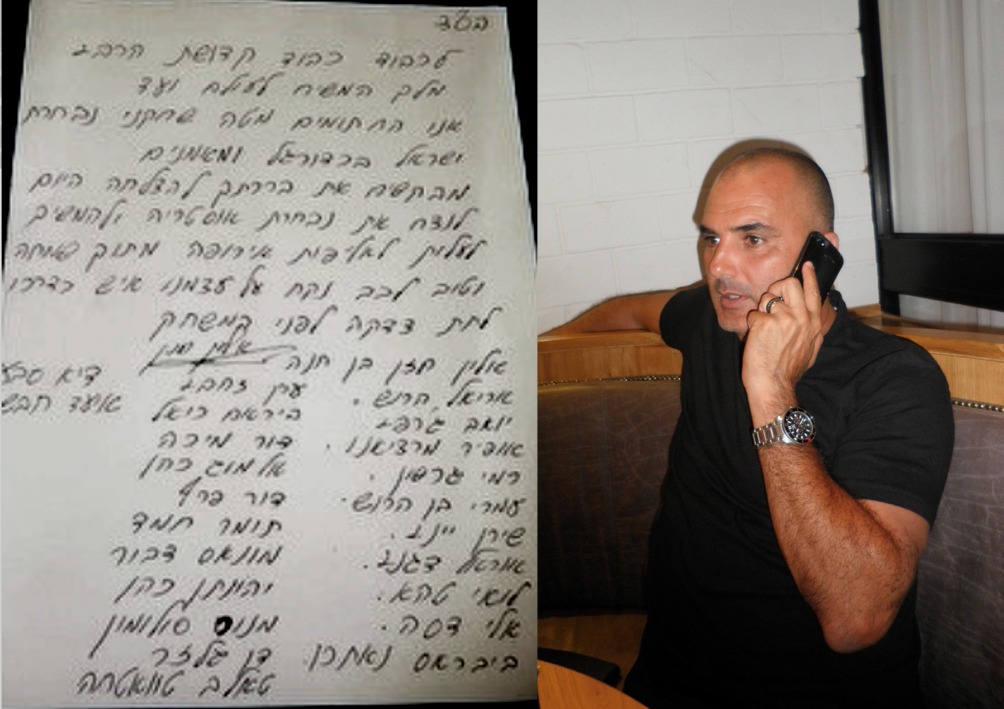 בס"ד
לכבוד כבוד קדושת הרבי
מלך המשיח לעולם ועד
אנו החתומים מטה שחקני נבחרת
ישראל בכדורגל ומאמנים
מבקשים את ברכתך להצלחה היום
לנצח את נבחרת אוסטריה ולהמשיך
לעלות לאליפות אירופה מתוך שמחה
וטוב לבב נקח על עצמנו איש כדרכו
לתת צדקה לפני המשחק
אלין חזן בן חנה
ערן זהבי
דיא סבע
אוריאל הרוש.
ביראם כיאל
אועד חבש
יואב ג'רפי
דור מיכה
אופיר מרציאנו.
אלמוג כהן
רמי גרשון.
דור פרץ
עמרי בן הרוש.
תומר חמד
שירן ייני.
מונאס דבור
אוראל דגני.
יהונתן כהן
לואי טהא.
מנור סולומון
אלי דסה.
דן גלזר
ביבראס נאתכו.
טאלב טוואטחה